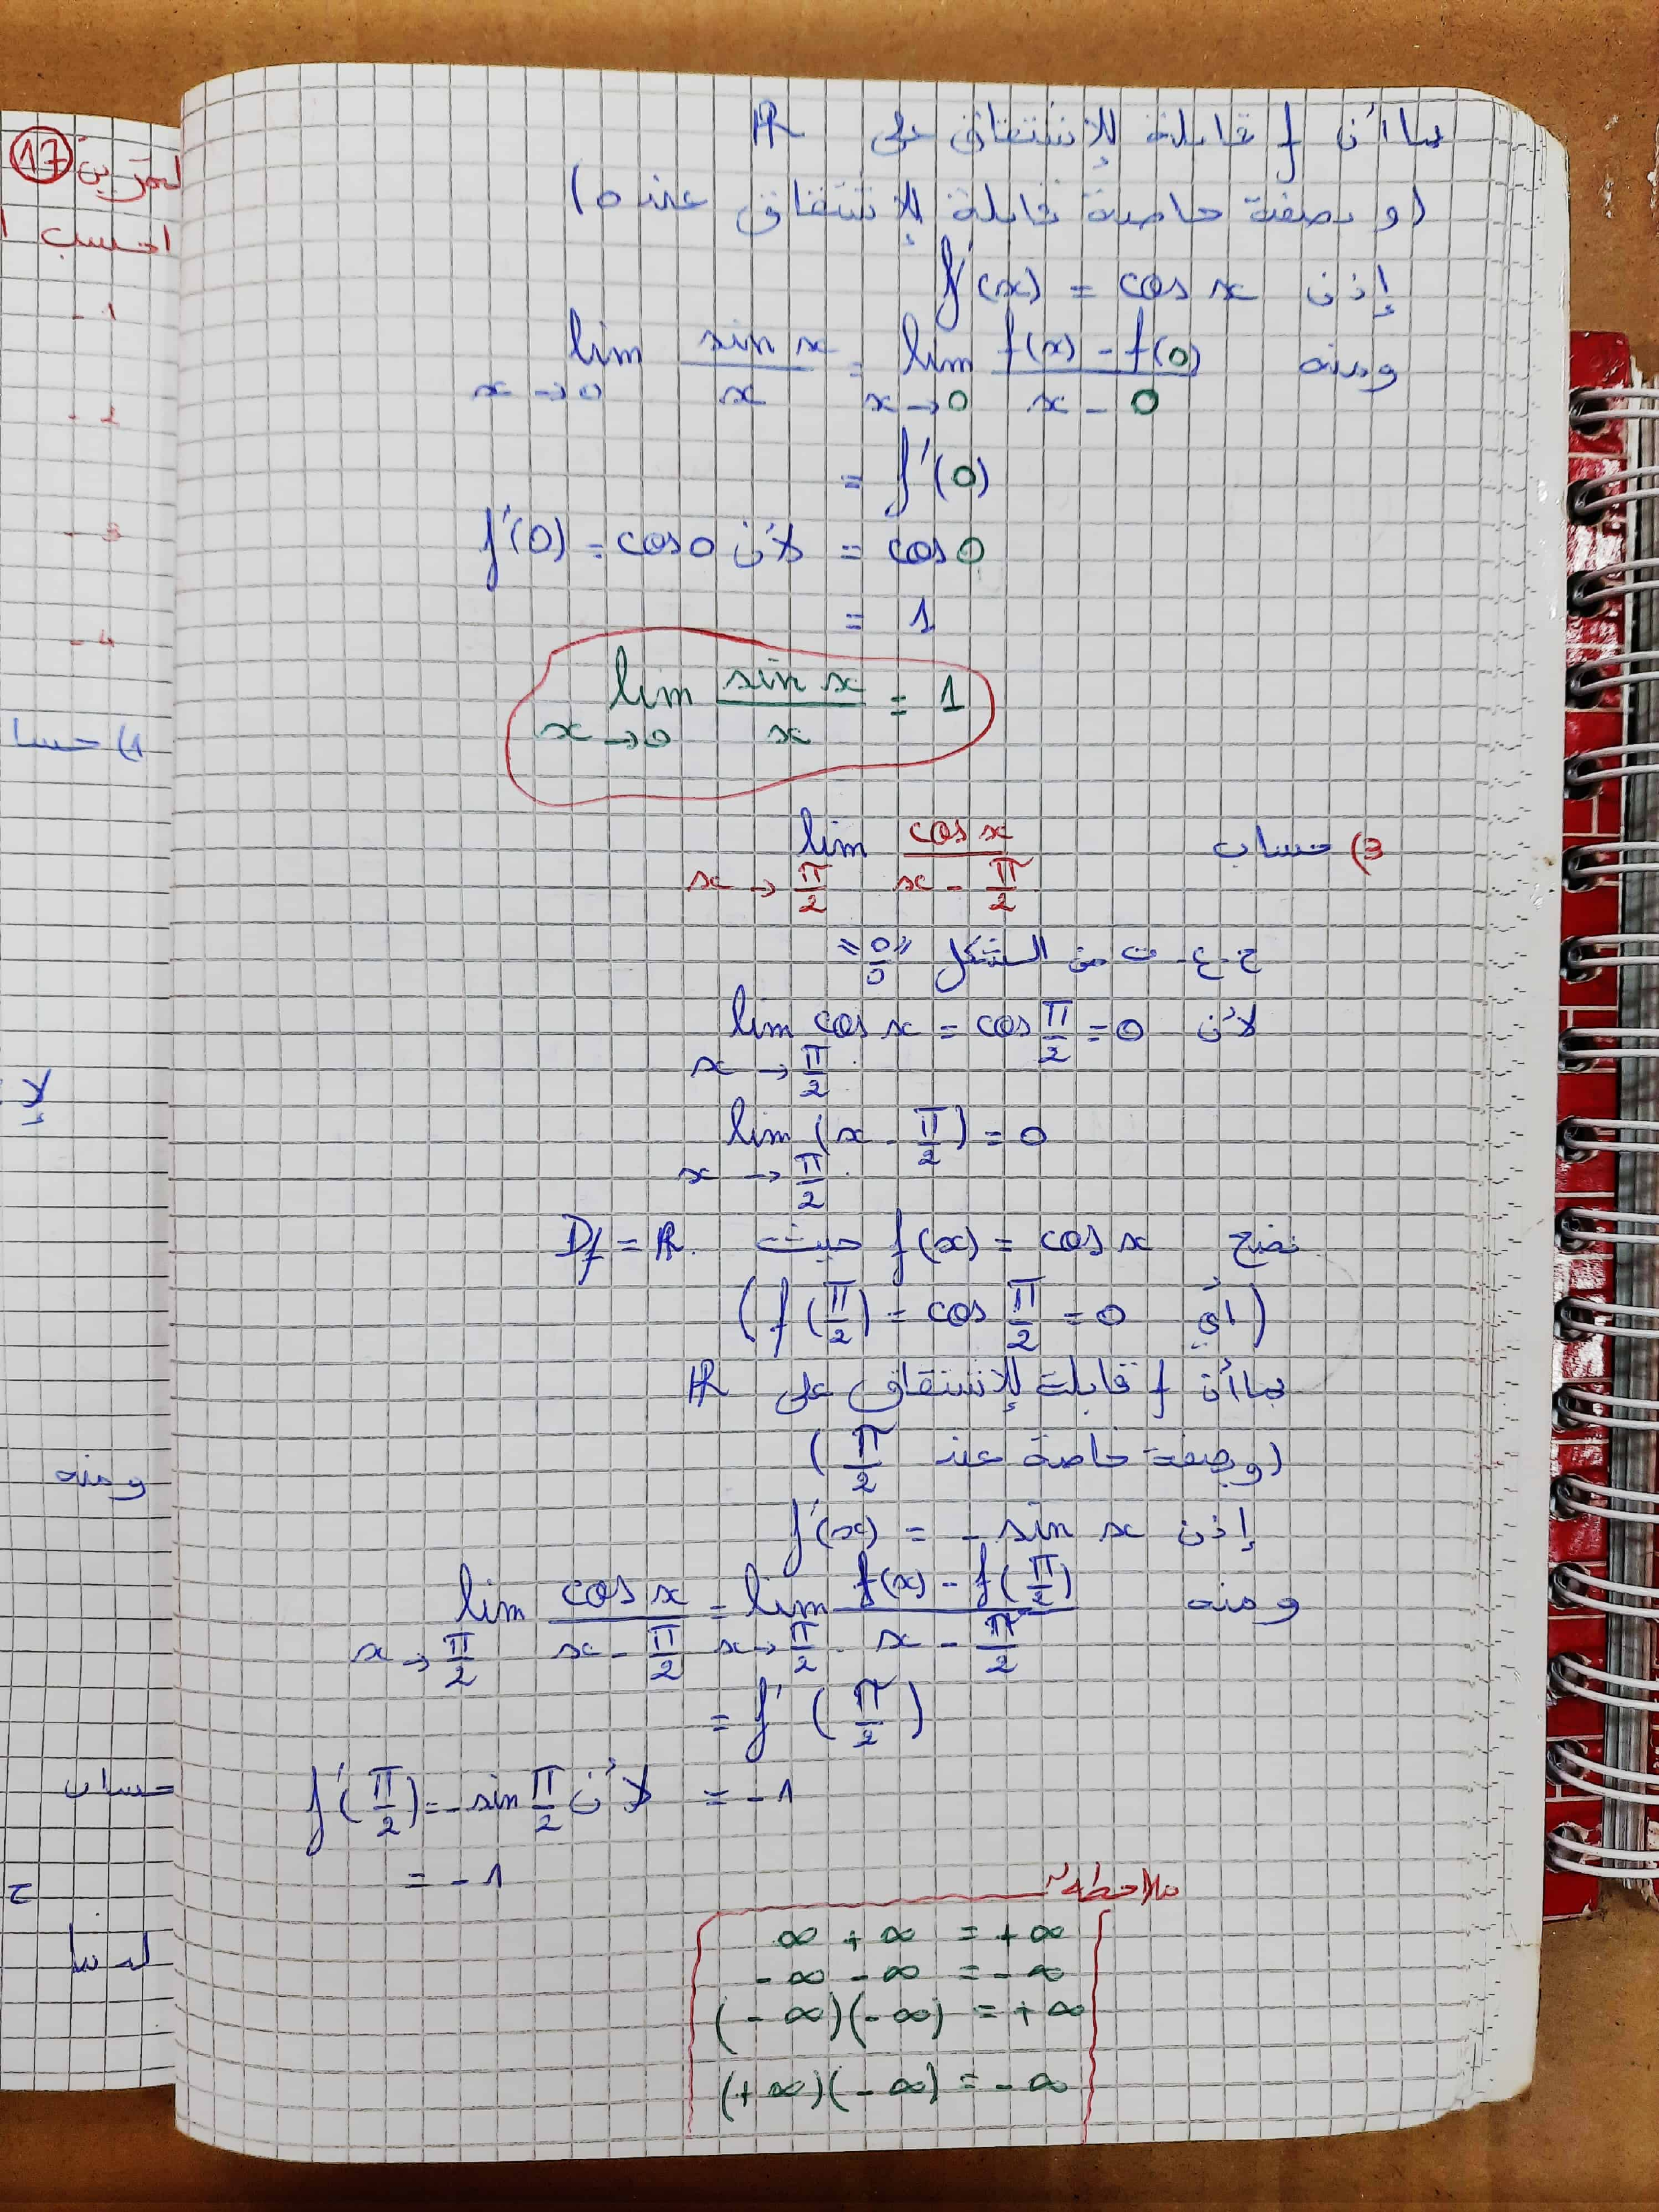 بما أن f قابلة للإشتقاق على ℝ
(و بصفة خاصة قابلة للإشتقاق عند 0)
إذن f'(x) = cos x
ومنه lim_{x→0} sin x / x = lim_{x→0} (f(x) - f(0)) / (x - 0)
= f'(0)
= cos 0 لأن f'(0) = cos 0
= 1
lim_{x→0} sin x / x = 1
3) حساب lim_{x→π/2} cos x / (x - π/2)
ح.ع.ت من الشكل "0/0"
لأن lim_{x→π/2} cos x = cos π/2 = 0
lim_{x→π/2} (x - π/2) = 0
نضع f(x) = cos x حيث Df = ℝ
(أي f(π/2) = cos π/2 = 0)
بما أن f قابلة للإشتقاق على ℝ
(وبصفة خاصة عند π/2)
إذن f'(x) = - sin x
ومنه lim_{x→π/2} cos x / (x - π/2) = lim_{x→π/2} (f(x) - f(π/2)) / (x - π/2)
= f'(π/2)
= -1 لأن f'(π/2) = - sin π/2
= -1
ملاحظة
∞ + ∞ = +∞
-∞ - ∞ = -∞
(-∞)(-∞) = +∞
(+∞)(-∞) = -∞
تمرين 17
احسب
- 1
- 2
- 3
- 4
1) حسا
ومنه
حساب
ح